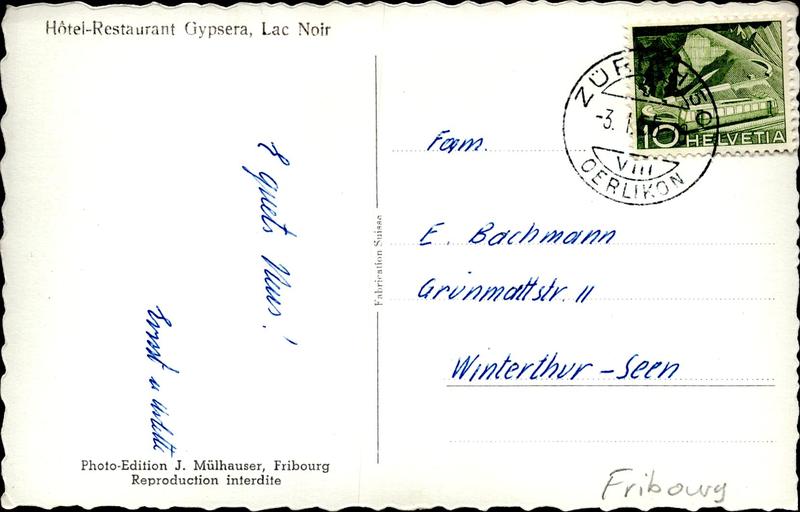 Hôtel-Restaurant Gypsera, Lac Noir
E guets Neus!
Ernst u
Photo-Edition J. Mülhauser, Fribourg
Reproduction interdite
Fabrication Suisse
ZÜRICH 50
-3. I.
VIII
OERLIKON
10 HELVETIA
Fam.
E. Bachmann
Grünmattstr. 11
Winterthur-Seen
Fribourg